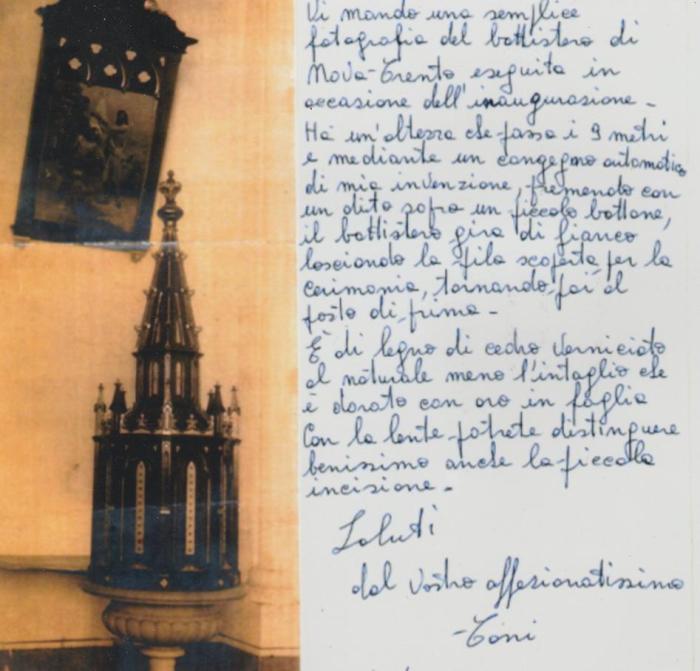 Vi mando una semplice
fotografia del battistero di
Nova-Trento eseguita in
occasione dell'inaugurasione -
Ha un'altezza che passa i 9 metri
e mediante un congegno automatico
di mia invenzione, premendo con
un dito sopra un piccolo bottone,
il battistero gira di fianco
lasciando la pila scoperta per la
cerimonia, tornando poi al
posto di prima -
È di legno di cedro verniciato
al naturale meno l'intaglio che
è dorato con oro in foglia
Con la lente potrete distinguere
benissimo anche la piccola
incisione -
Saluti
dal vostro affesionatissimo
-Toni